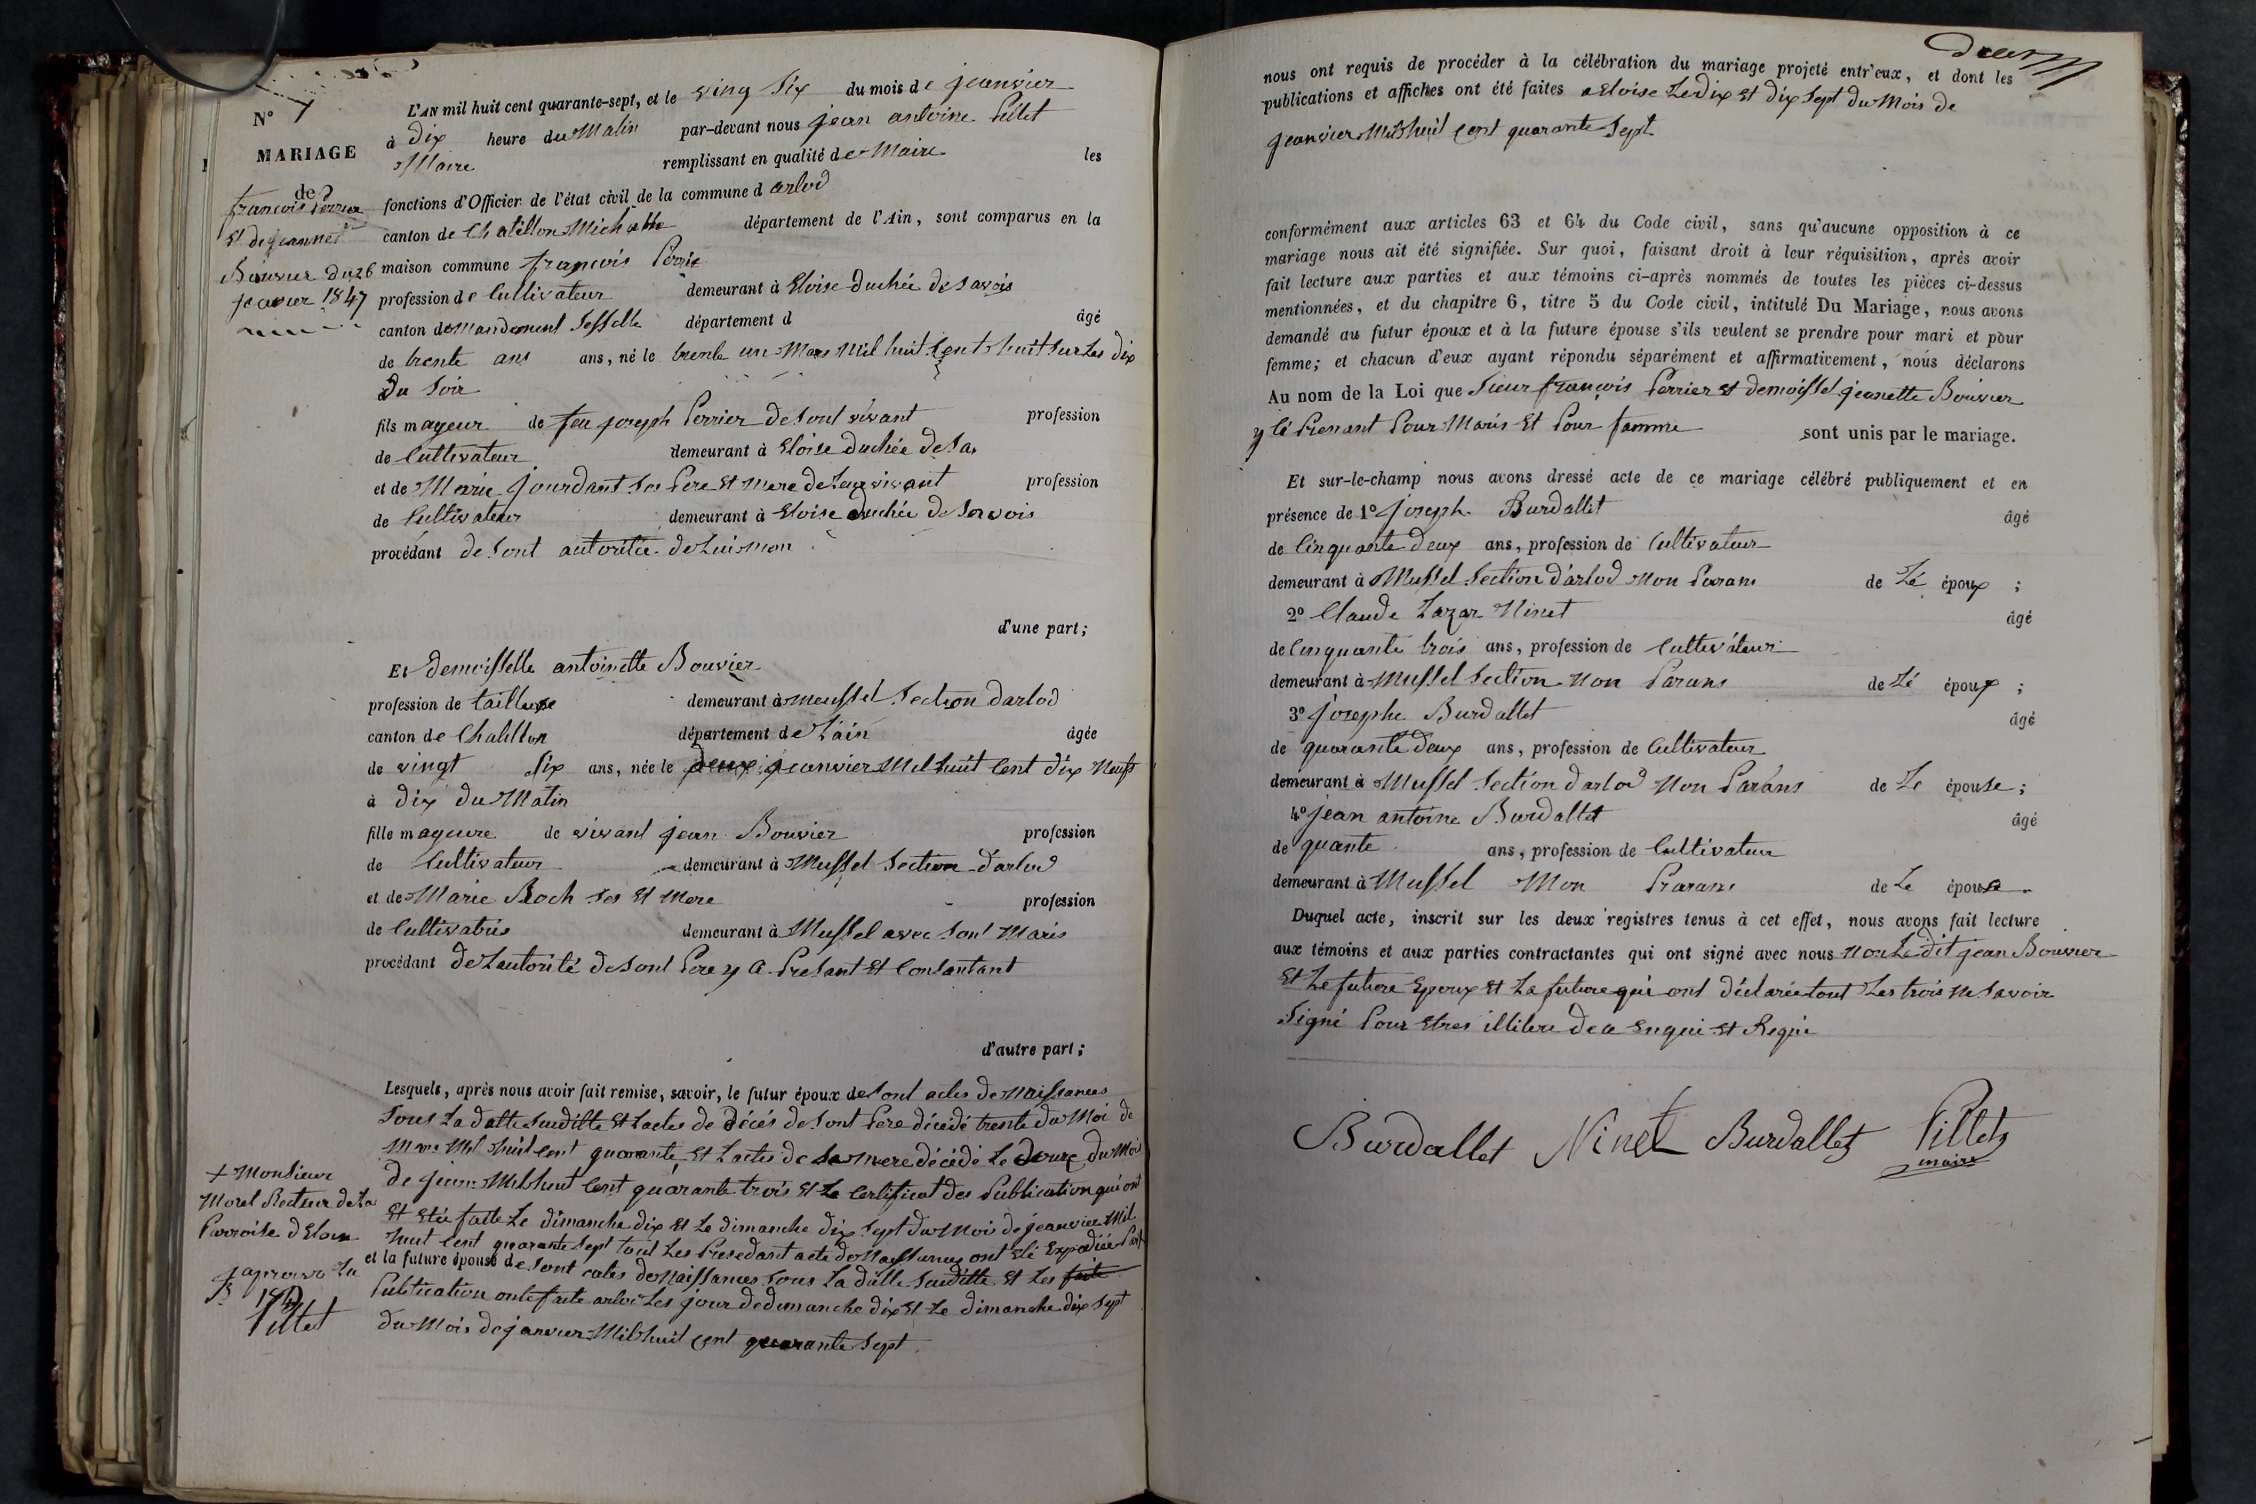 N° 1
MARIAGE
de
françois Perrier
Et de jeannet
Bouvier du 26
janvier 1847
L'AN mil huit cent quarante-sept, et le ving Six du mois de jeanvier
à Dix heure du Matin par-devant nous jean antoine Pillet
Maire remplissant en qualité de Maire les
fonctions d'Officier de l'état civil de la commune d arlod
canton de Chatillon Michaille département de l'Ain, sont comparus en la
maison commune françois Perrie
profession de Cultivateur demeurant à Eloise duchée de Savois
canton de Mandement Sesselle département d âgé
de trente ans ans, né le trente un Mars Mil huit Cent huit Sur Les dix
du Soir
fils mageur de feu joseph Perrier de Sont vivant profession
de Cultivateur demeurant à Eloise duchée de Sa
et de Marie jourdant Ses Pere Et mere de Leur vivant profession
de Cultivateur demeurant à Eloise duchée de Savois
procédant de Sont autoritée de Lui mem
d'une part;
Et demoisselle antoinette Bouvier
profession de tailleuse demeurant à Meussel Section darlod
canton de Chatillon département de L'ain âgée
de vingt Six ans, née le deux jeanvier Mil huit Cent dix Neuf
à dix du Matin
fille mageure de vivant jean Bouvier profession
de Cultivateur demeurant à Mussel Section d'arlod
et de Marie Roch Ses Et Mere profession
de Cultivatris demeurant à Mussel avec Sont Maris
procédant de Lautorité de Sont Pere y a Presant Et Consantant
d'autre part;
Lesquels, après nous avoir fait remise, savoir, le futur époux de Sont actes de Naissances
Sous La datte Susditte Et Lactes de Décés de Sont Pere décédé trente du Moi de
Mars Mil huit Cent quarante, Et Lactes de Sa Mere décédé Le Douze du Mois
de juin Mil huit Cent quarante trois Et Le Certificat des Publication qui ont
Et Etée faite Le dimanche dix Et Le dimanche dix Sept du Mois de jeanvier Mil
huit Cent quarante Sept tout Les Presedant acte de Naissances ont Eté Expediée Par +
et la future épouse de Sont actes de Naissances Sous La datte Susditte Et Les faite
Publication onte faite arlod Les jour de dimanche dix Et Le dimanche dix Sept
du Mois de janvier Mil huit Cent quarante Sept
+ Monsieur
Morel Recteur de La
Parroise d'Eloise
japrouve La
Pillet
deux
nous ont requis de procéder à la célébration du mariage projeté entr'eux, et dont les
publications et affiches ont été faites a Eloise Le dix Et dix Sept du Mois de
jeanvier Mil huit Cent quarante Sept
conformément aux articles 63 et 64 du Code civil, sans qu'aucune opposition à ce
mariage nous ait été signifiée. Sur quoi, faisant droit à leur réquisition, après avoir
fait lecture aux parties et aux témoins ci-après nommés de toutes les pièces ci-dessus
mentionnées, et du chapitre 6, titre 5 du Code civil, intitulé Du Mariage, nous avons
demandé au futur époux et à la future épouse s'ils veulent se prendre pour mari et pour
femme; et chacun d'eux ayant répondu séparément et affirmativement, nous déclarons
Au nom de la Loi que Sieur françois Perrier Et demoissel jeanette Bouvier
y Cé Prenant Pour Maris Et Pour famme sont unis par le mariage.
Et sur-le-champ nous avons dressé acte de ce mariage célébré publiquement et en
présence de 1° joseph Burdallet âgé
de Cinquante deux ans, profession de Cultivateur
demeurant à Mussel Section d'arlod Non Parans de Lé époux ;
2° Claude Lazar Ninet âgé
de Cinquante trois ans, profession de Cultivateur
demeurant à Mussel Section Non Parans de Lé époux ;
3° josephe Burdallet âgé
de quarante deux ans, profession de Cultivateur
demeurant à Mussel Section d'arlod Non Parans de Le épouse ;
4° jean antoine Burdallet âgé
de quante ans, profession de Cultivateur
demeurant à Mussel Non Prarans de Le épouse.
Duquel acte, inscrit sur les deux registres tenus à cet effet, nous avons fait lecture
aux témoins et aux parties contractantes qui ont signé avec nous Non Le dit jean Bouvier
Et Le future Epoux Et La future qui ont déclarée tout Les trois Ne Savoir
Signé Pour Etres illitere de ce Enqui Et Requi
Burdallet Ninet Burdallet Pillet
maire